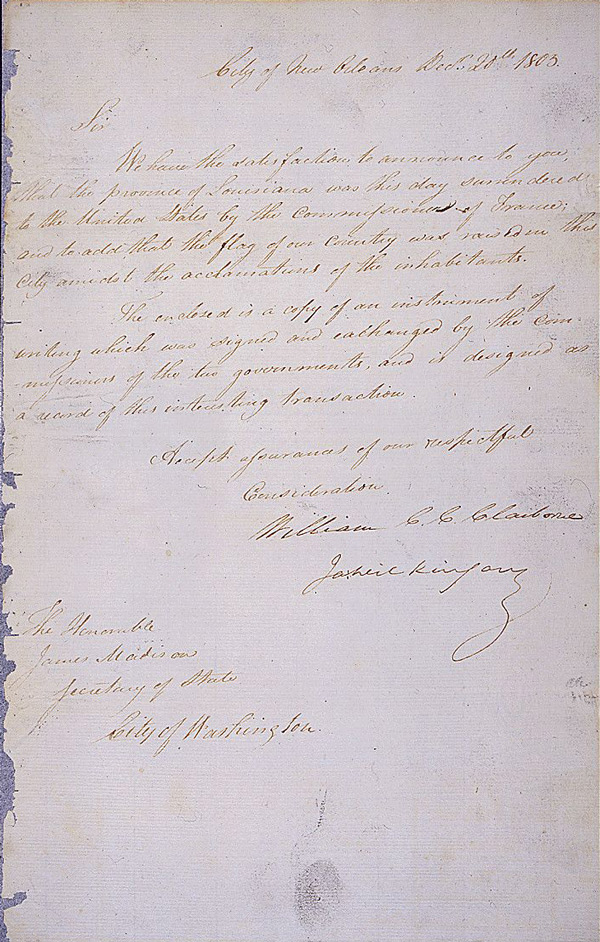 City of New Orleans Decr. 20th 1803.
Sir
We have the satisfaction to announce to you,
that the province of Louisiana was this day surrendered
to the United States by the Commissioner of France;
and to add that the flag of our Country was raised in this
City amidst the acclamations of the inhabitants.
The enclosed is a copy of an instrument of
writing which was signed and exchanged by the Com-
missioners of the two governments, and is designed as
a record of this interesting transaction.
Accept assurances of our respectful
Consideration.
William C. C. Claiborne
Ja Wilkinson
The Honorable
James Madison
Secretary of State
City of Washington.